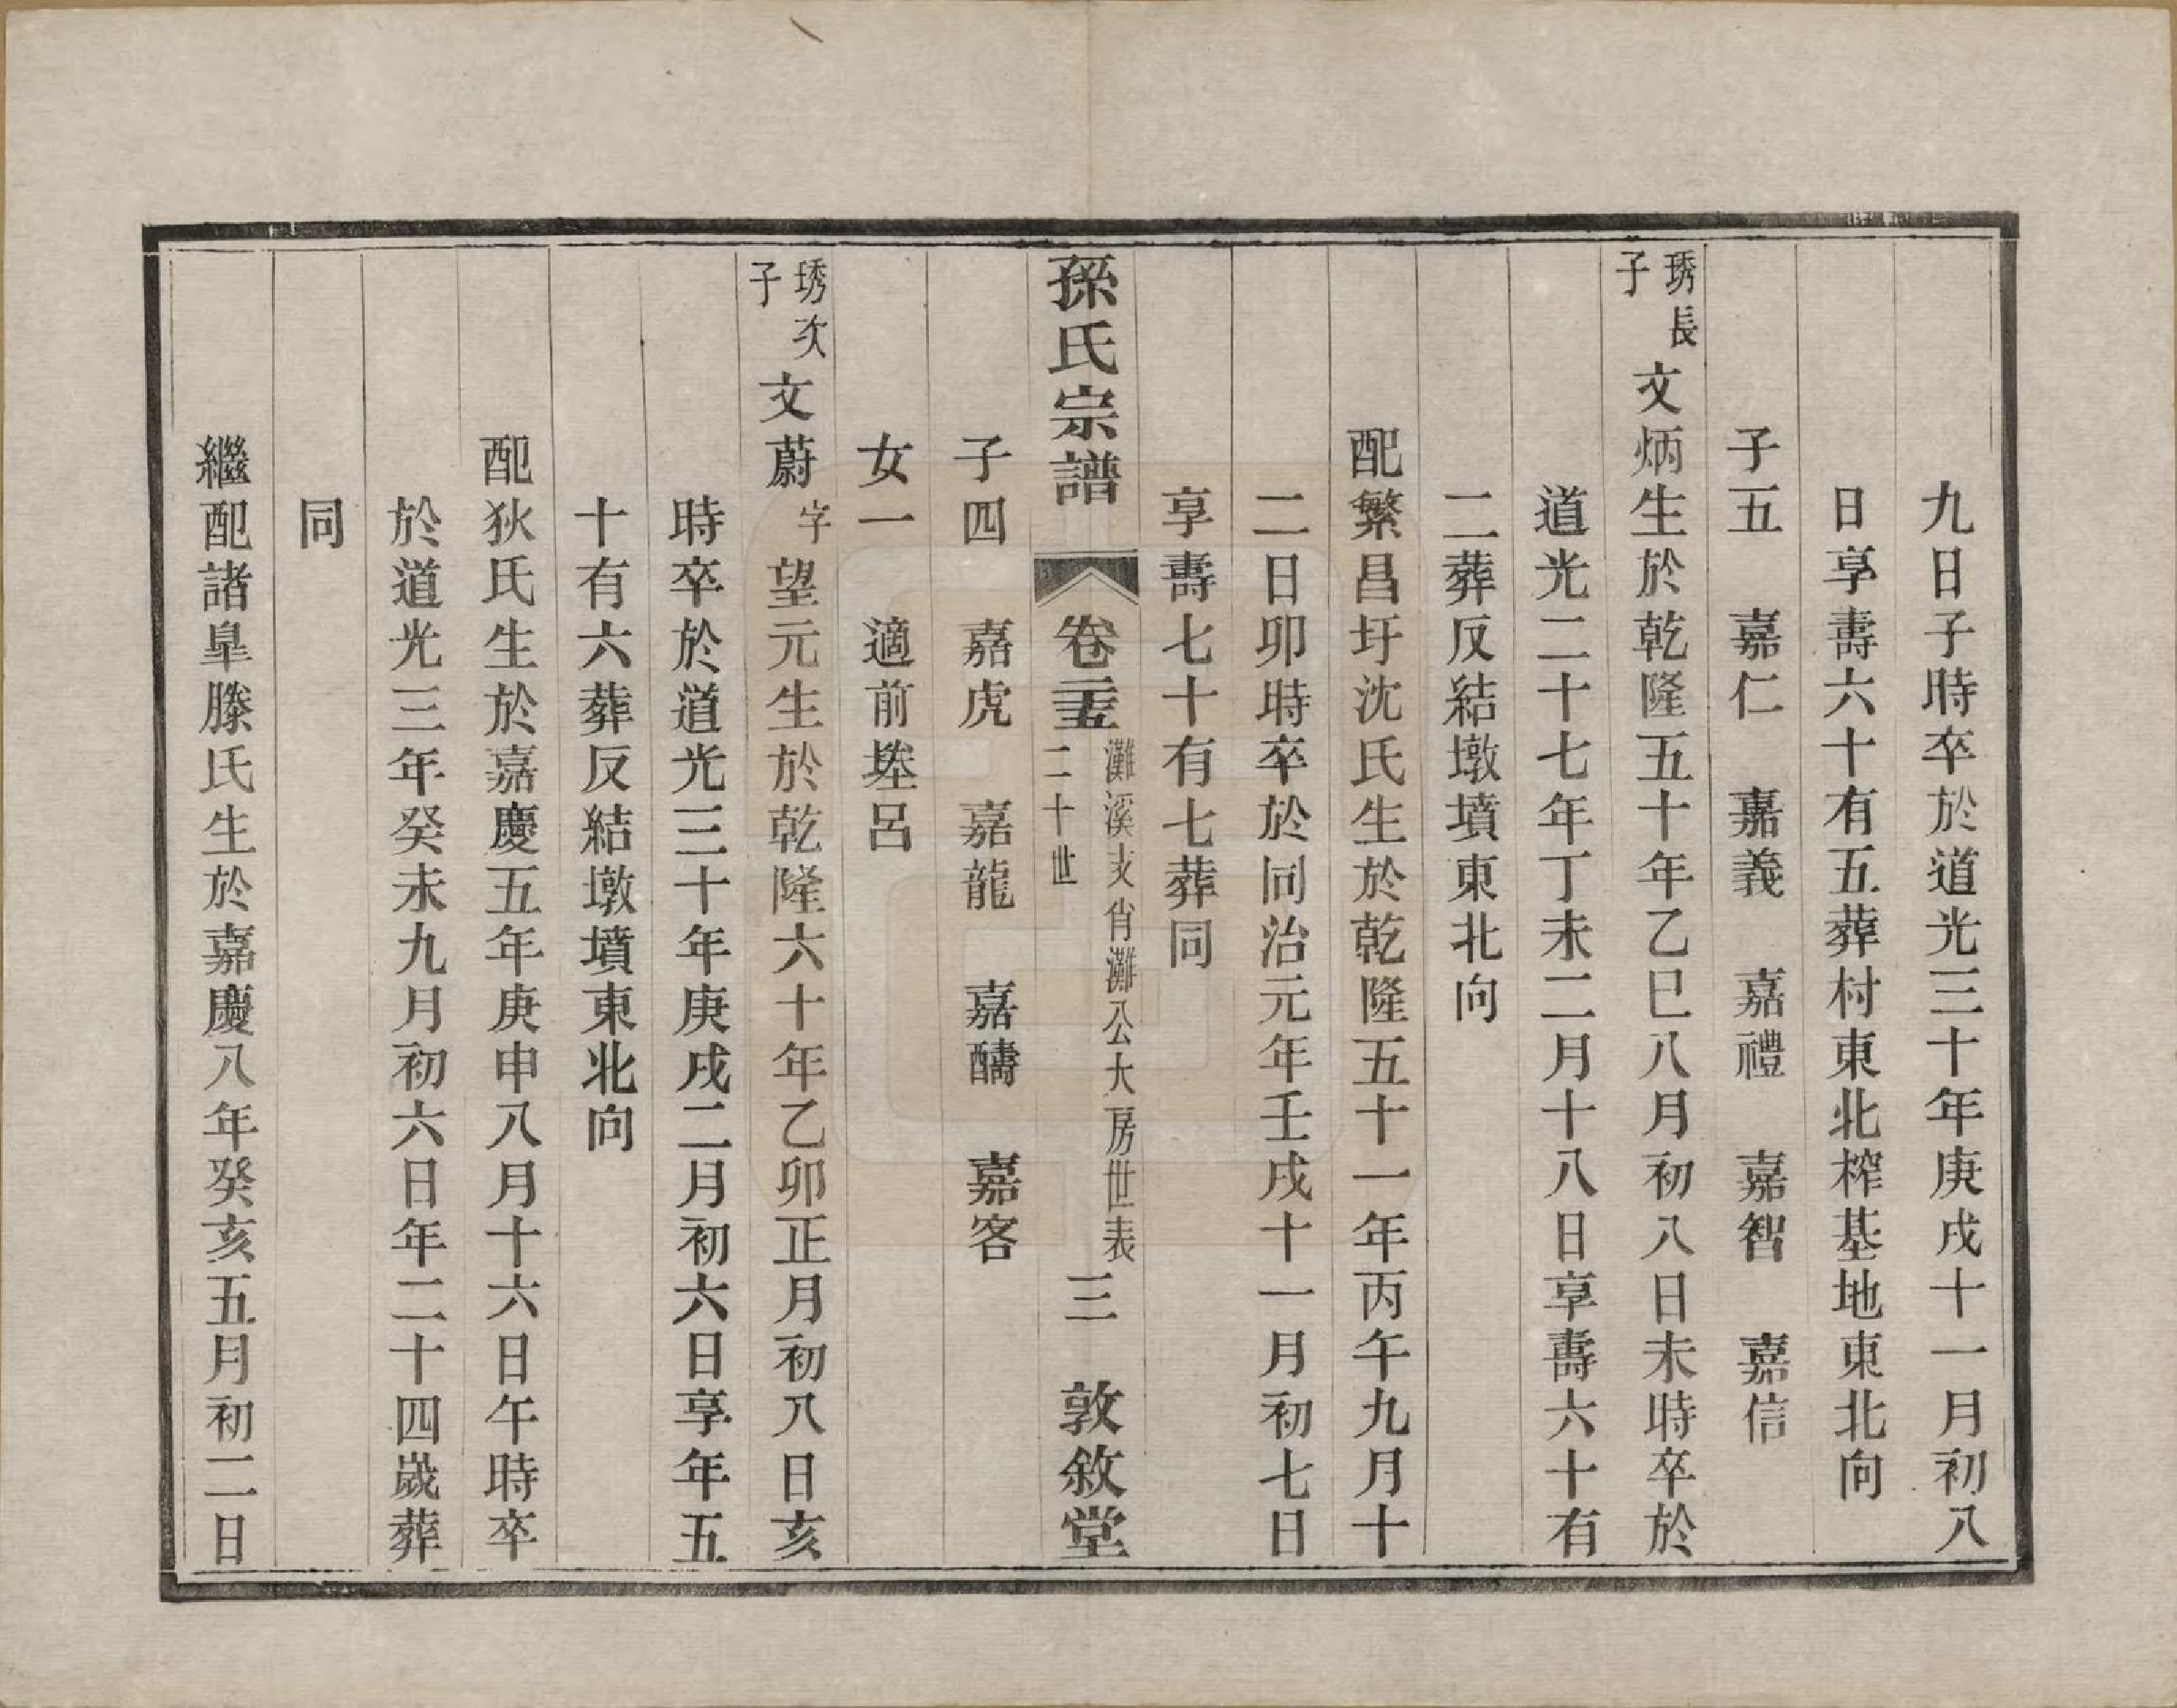 九日子時卒於道光三十年庚戌十一月初八
日享壽六十有五葬村東北榨基地東北向
子五　嘉仁　嘉義　嘉禮　嘉智　嘉信
琇長子文炳生於乾隆五十年乙巳八月初八日未時卒於
道光二十七年丁未二月十八日享壽六十有
二葬反結墩墳東北向
配繁昌圩沈氏生於乾隆五十一年丙午九月十
二日卯時卒於同治元年壬戌十一月初七日
享壽七十有七葬同
孫氏宗譜　卷二十五　灘溪支肖灘公大房世表　二十世　三　敦敘堂
子四　嘉虎　嘉龍　嘉疇　嘉客
女一　適前埜呂
琇次子文蔚字望元生於乾隆六十年乙卯正月初八日亥
時卒於道光三十年庚戌二月初六日享年五
十有六葬反結墩墳東北向
配狄氏生於嘉慶五年庚申八月十六日午時卒
於道光三年癸未九月初六日年二十四歲葬
同
繼配諸臯滕氏生於嘉慶八年癸亥五月初二日